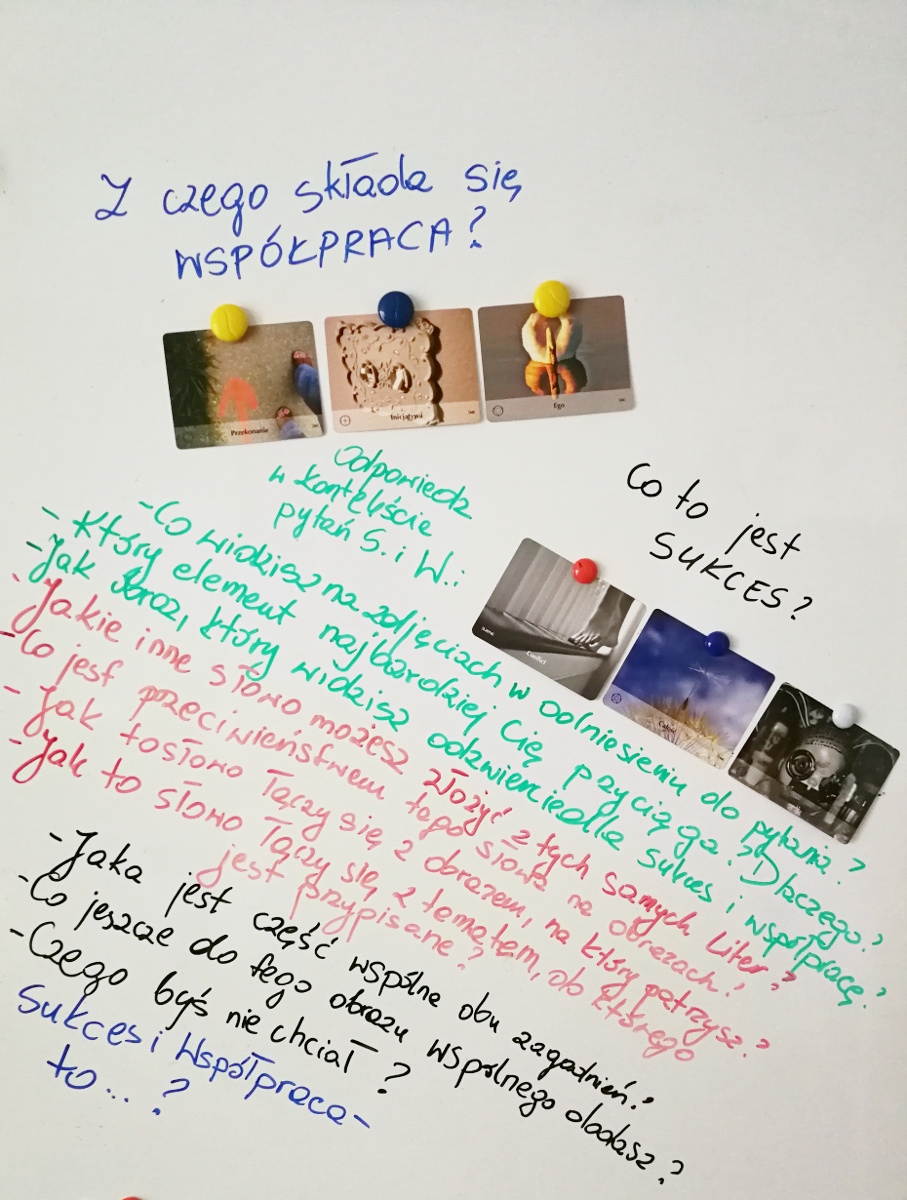 Z czego składa się
WSPÓŁPRACA?
Przekonanie
Inicjatywa
Ego
Odpowiedz
w kontekście
pytań S. i W.:
Co to jest
SUKCES?
Całość
- Co widzisz na zdjęciach w odniesieniu do pytania?
- Który element najbardziej Cię przyciąga? Dlaczego?
- Jak obraz, który widzisz odzwierciedla sukces i współpracę?
- Jakie inne słowo możesz złożyć z tych samych liter?
- Co jest przeciwieństwem tego słowa na obrazach?
- Jak to słowo łączy się z obrazem, na który patrzysz?
- Jak to słowo łączy się z tematem, do którego
jest przypisane?
- Jaka jest część wspólna obu zagadnień?
- Co jeszcze do tego obrazu wspólnego dodasz?
- Czego byś nie chciał?
Sukces i Współpraca -
to...?